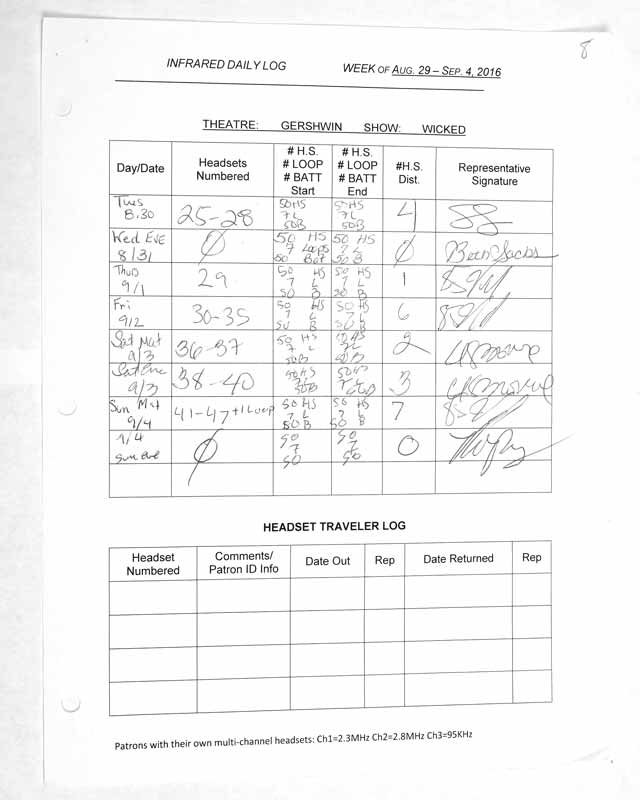 8
INFRARED DAILY LOG WEEK OF AUG. 29 – SEP. 4, 2016
THEATRE: GERSHWIN SHOW: WICKED
Day/Date Headsets Numbered # H.S. # LOOP # BATT Start # H.S. # LOOP # BATT End #H.S. Dist. Representative Signature
Tues 8.30 25-28 50HS 7L 50B 50HS 7L 50B 4
Wed EVE 8/31 Ø 50 HS 7 Loops 50 Bat 50 HS 7 L 50 B Ø Beth Jacobs
Thur 9/1 29 50 HS 7 L 50 B 50 HS 7 L 50 B 1
Fri 9/2 30-35 50 HS 7 L 50 B 50 HS 7 L 50 B 6
Sat Mat 9/3 36-37 50 HS 7 L 50B 50 HS 7L 50B 2
Sat Eve 9/3 38-40 50HS 7L 50B 50HS 7L 50B 3
Sun Mat 9/4 41-47 +1 Loop 50 HS 7 L 50B 50 HS 7 L 50 B 7
9/4 Sun eve Ø 50 7 50 50 7 50 0
HEADSET TRAVELER LOG
Headset Numbered Comments/ Patron ID Info Date Out Rep Date Returned Rep
Patrons with their own multi-channel headsets: Ch1=2.3MHz Ch2=2.8MHz Ch3=95KHz